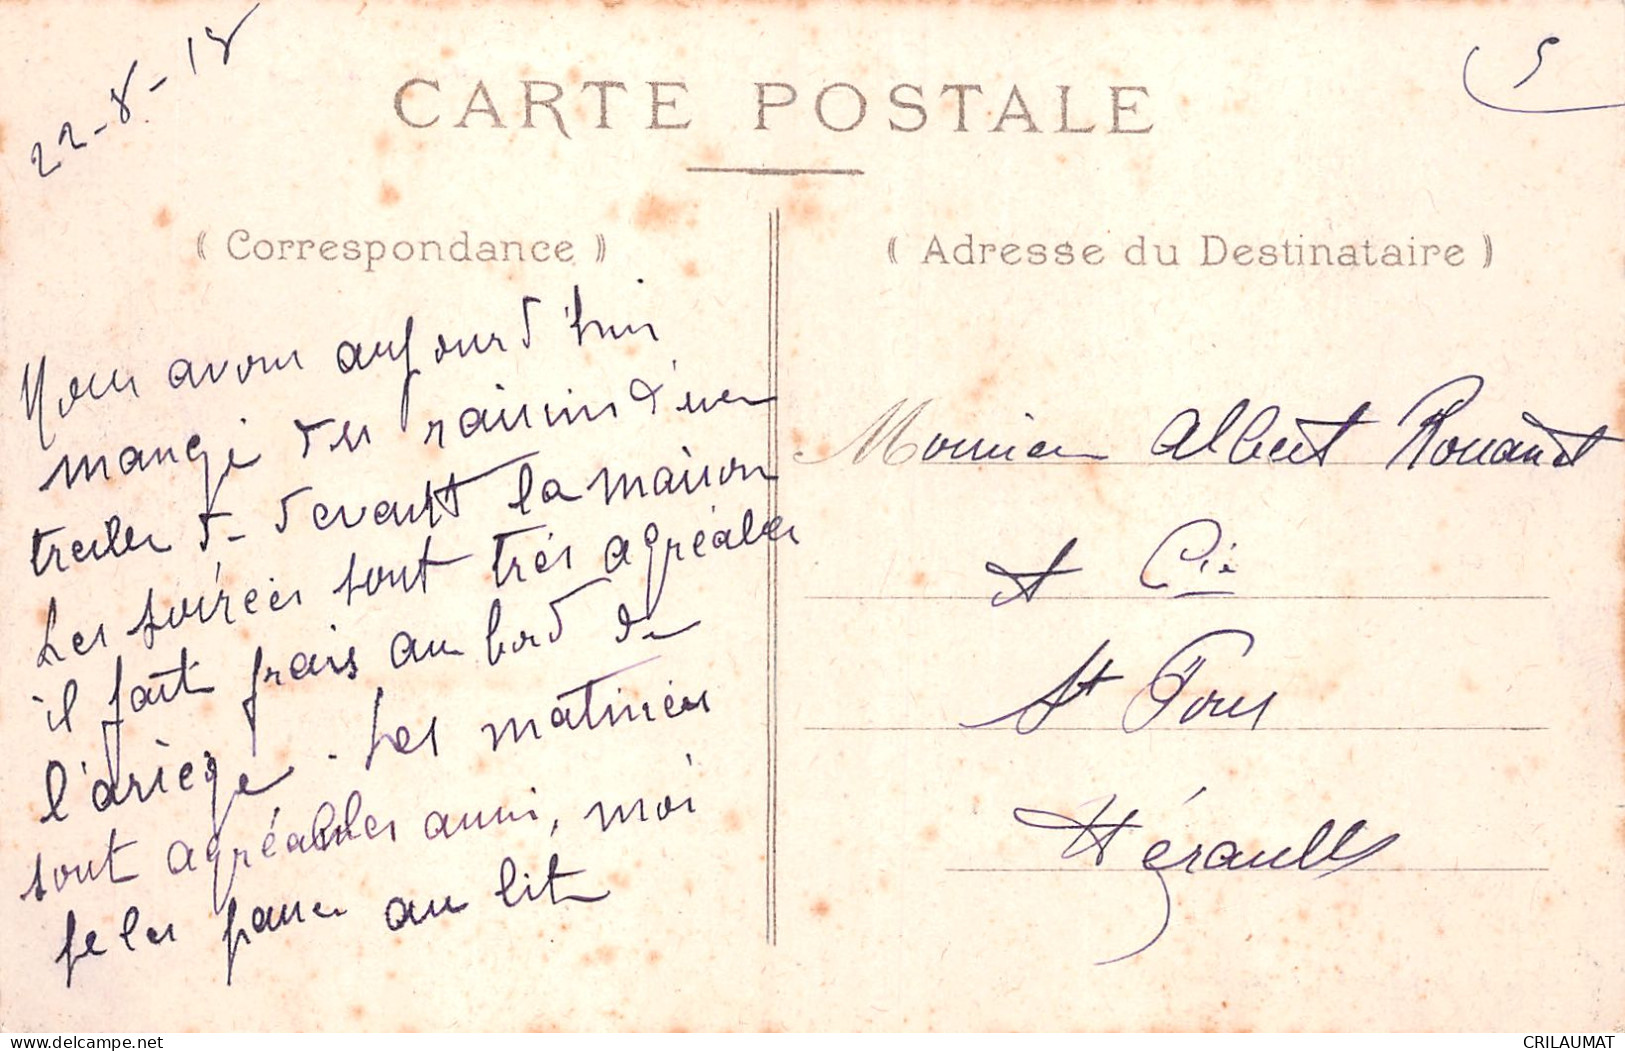 22-8-18
5
CARTE POSTALE
( Correspondance )
Nous avons aujourd'hui
mangé des raisins d'une
treille de devant la maison
Les soirées sont très agréables
il fait frais au bord de
l'ariège. Les matinées
sont agréables aussi, moi
je les passe au lit
( Adresse du Destinataire )
Monsieur Albert Rouanet
& Cie
St Pons
Hérault
delcampe.net
CRILAUMAT